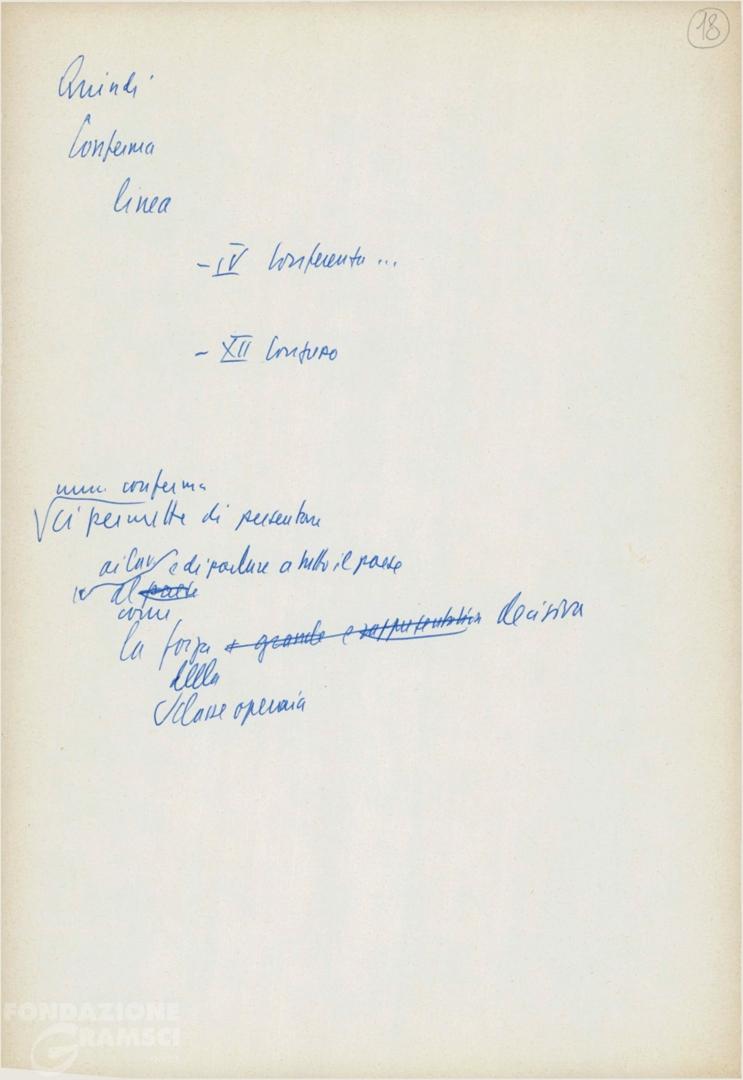 18
Quindi
Conferma
linea
- IV Conferenza ...
- XII Congresso
conferma
ci permette di presentare
ai lav e di parlare a tutto il paese
al paese
come
la forza + grande e rappresentativa decisiva
della
classe operaia
FONDAZIONE
GRAMSCI